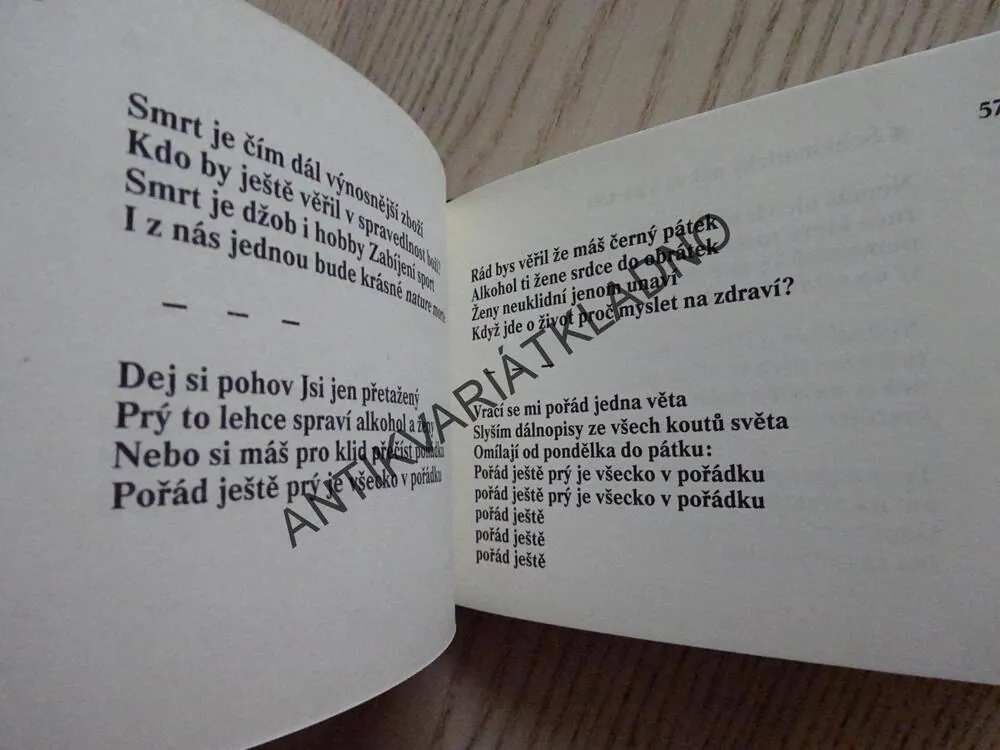 Smrt je čím dál výnosnější zboží
Kdo by ještě věřil v spravedlnost boží?
Smrt je džob i hobby Zabíjení sport
I z nás jednou bude krásné nature morte
– – –
Dej si pohov Jsi jen přetažený
Prý to lehce spraví alkohol a ženy
Nebo si máš pro klid přečíst pohádku
Pořád ještě prý je všecko v pořádku
57
Rád bys věřil že máš černý pátek
Alkohol ti žene srdce do obrátek
Ženy neuklidní jenom unaví
Když jde o život proč myslet na zdraví?
– – –
Vrací se mi pořád jedna věta
Slyším dálnopisy ze všech koutů světa
Omílají od pondělka do pátku:
Pořád ještě prý je všecko v pořádku
pořád ještě prý je všecko v pořádku
pořád ještě
pořád ještě
pořád ještě
ANTIKVARIÁTKLADNO